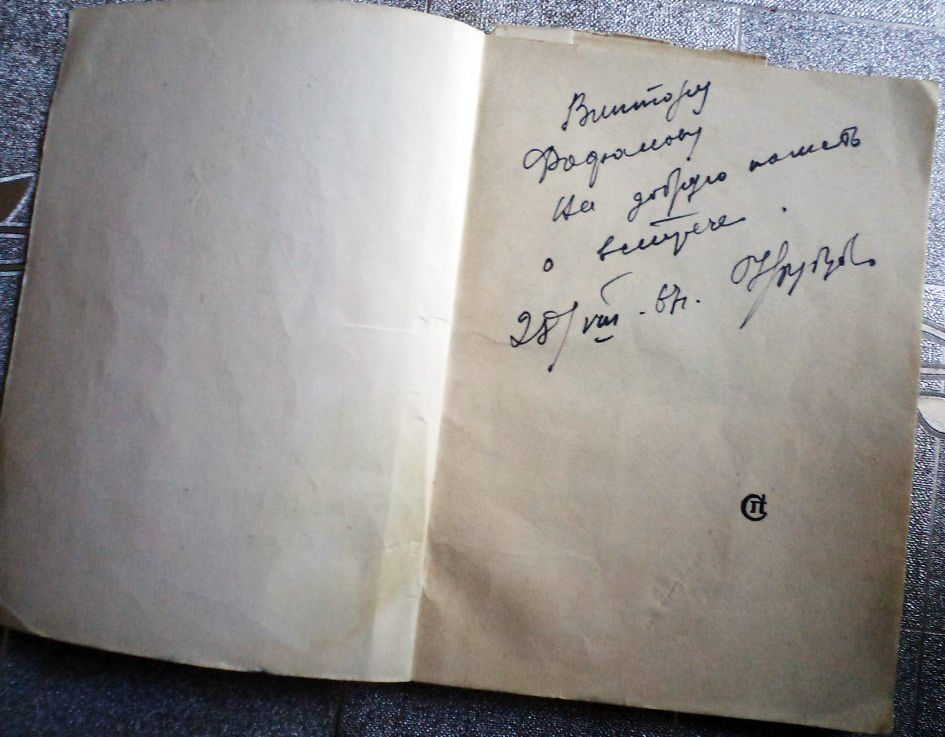 Виктору
Фадюмову
На добрую память
о встрече.
28/VIII-67г. Н Рубцов
СП